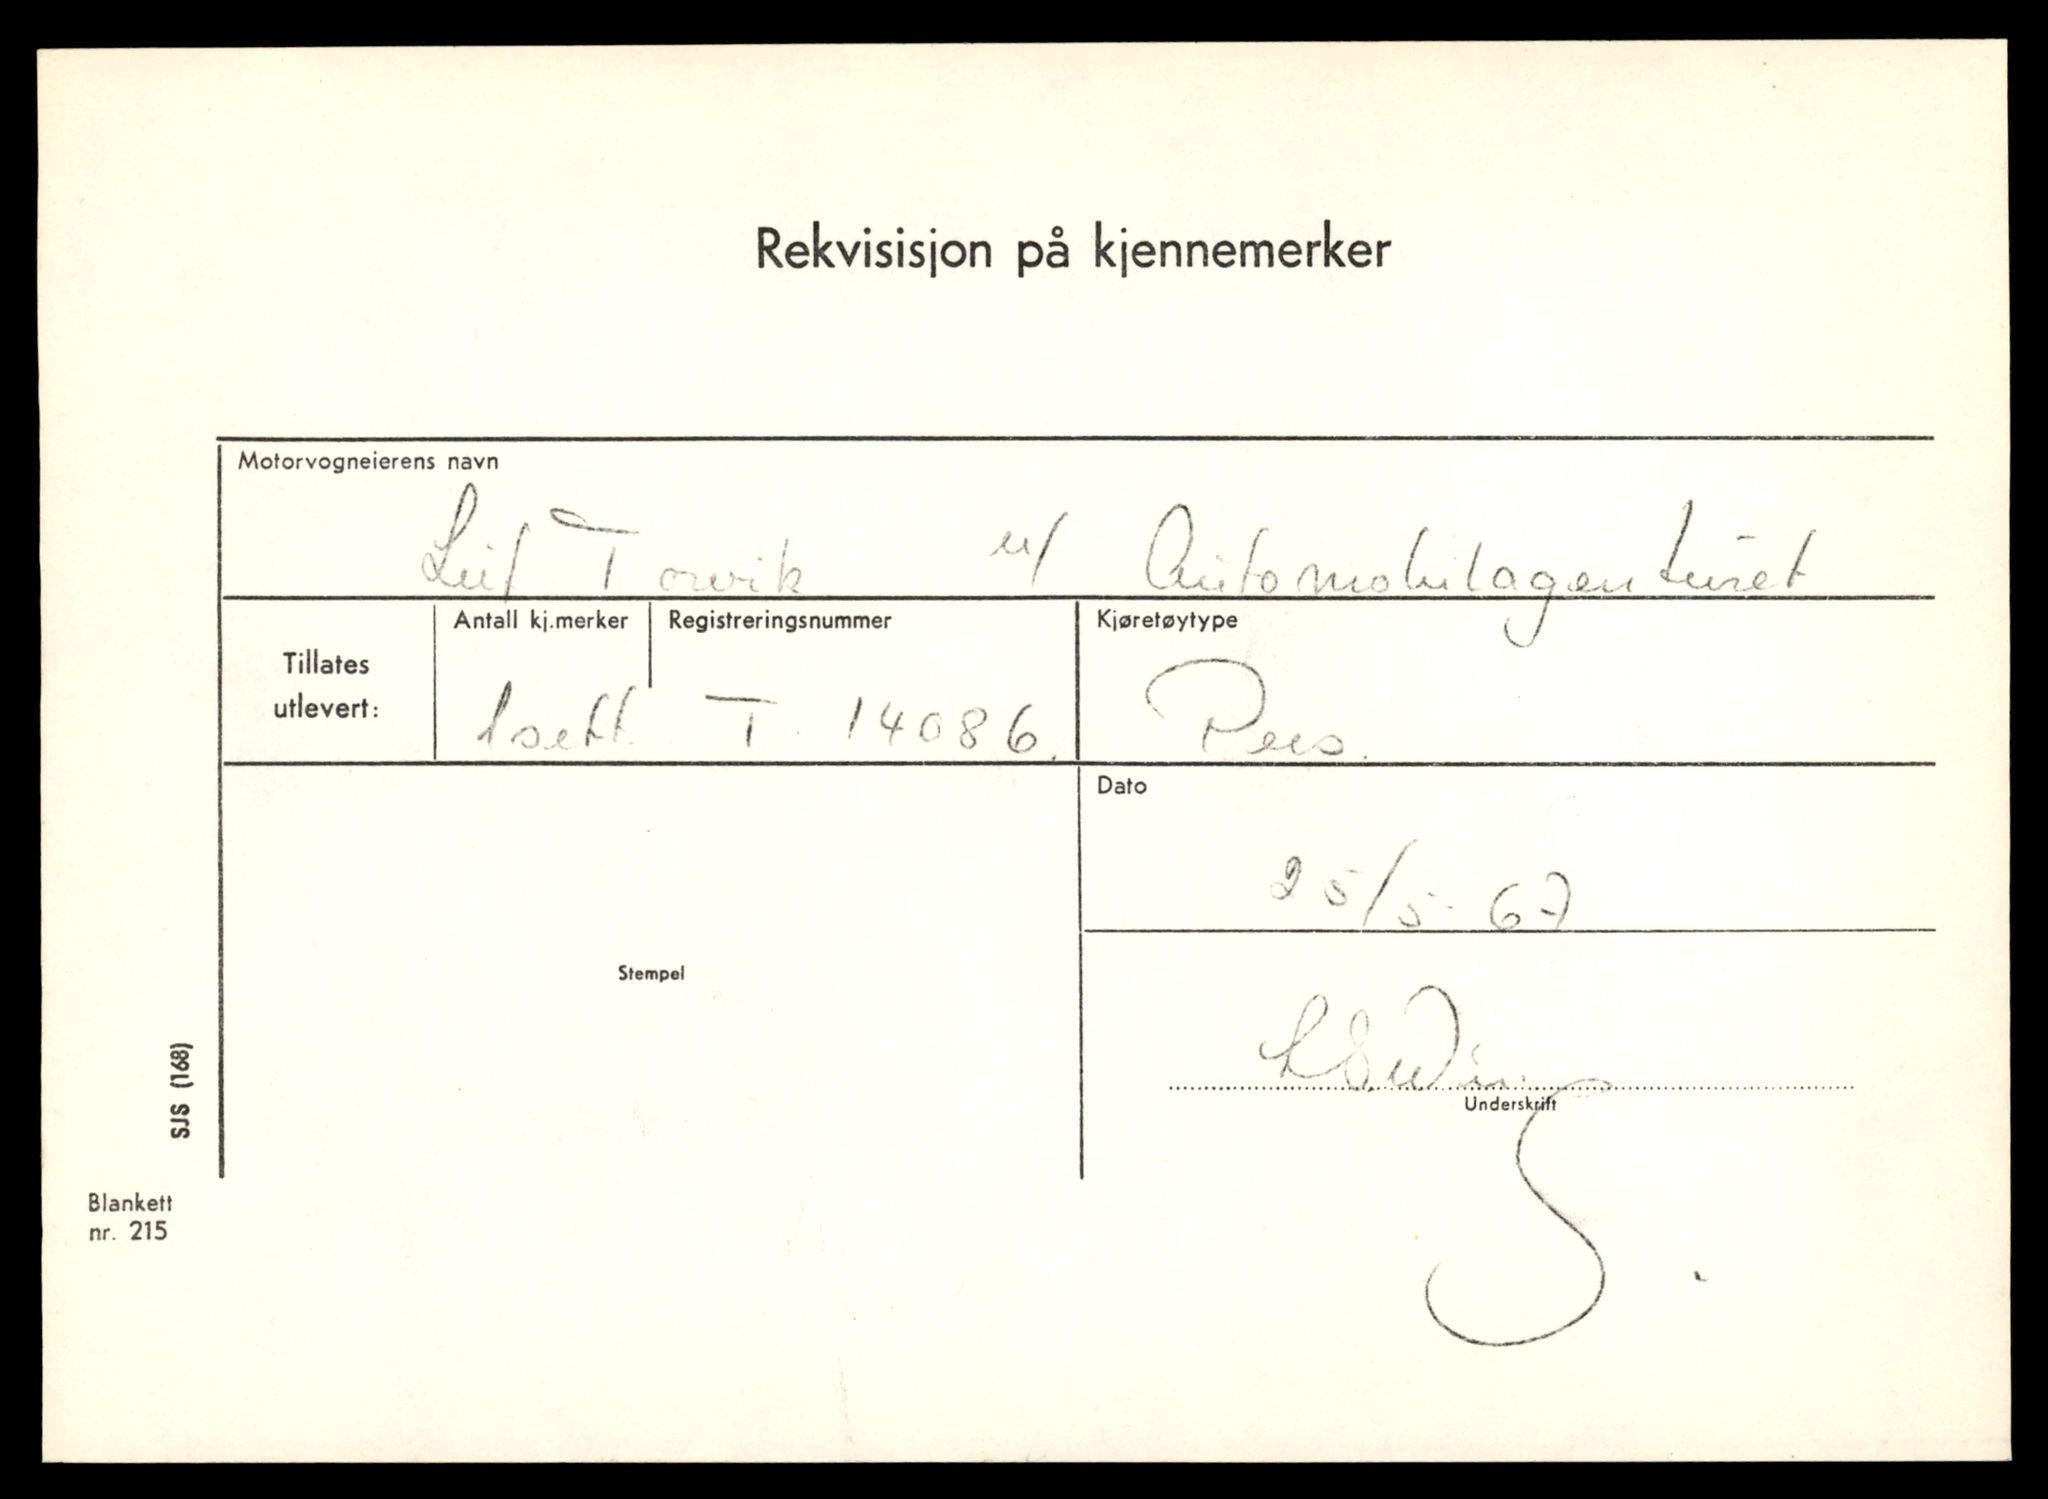 Rekvisisjon på kjennemerker
Motorvogneierens navn
Leif Torvik v/ Automobilagenturet
Tillates utlevert:
Antall kj.merker
1 sett
Registreringsnummer
T. 14086.
Kjøretøytype
Pers.
Dato
25/5-67
Stempel
Underskrift
SJS (168)
Blankett
nr. 215